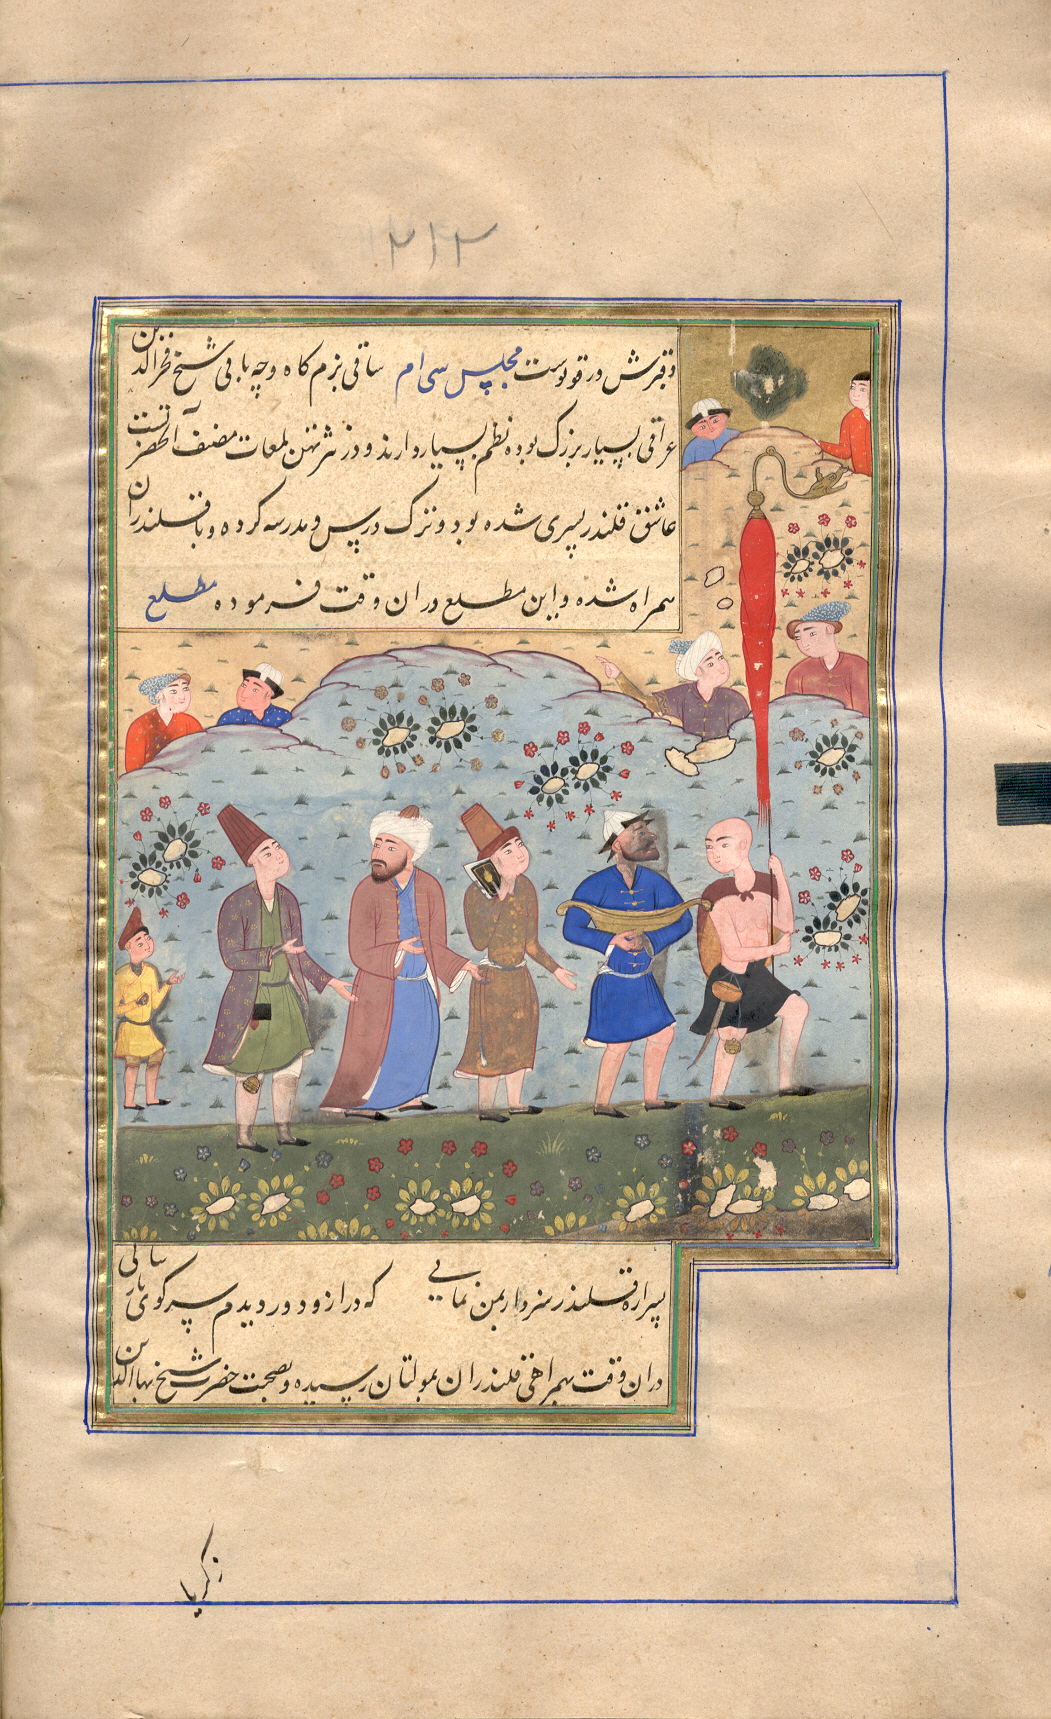 ۲۱۳
وقبرش در قونوست مجلس سی ام ساقی بزم کاه وچه باقی شیخ فخرالدین
عراقی بسیار بزرگ بوده نظم بسیار دارند و در نثر فن لمعات مصنف آنحضرتست
عاشق قلندر پسری شده بود و ترک درس و مدرسه کرده و با قلندران
همراه شده و این مطلع در ان وقت فرموده مطلع
پسرا ره قلندر سزد ار بمن نمایی که دراز و دور دیدم سر کوی پارسائی
دران وقت بهمراهی قلندران بمولتان رسیده و بصحبت حضرت شیخ بهاالدین
زکریا